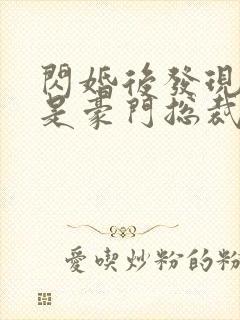 閃婚後發現
是豪門總裁
愛喫炒粉的粉